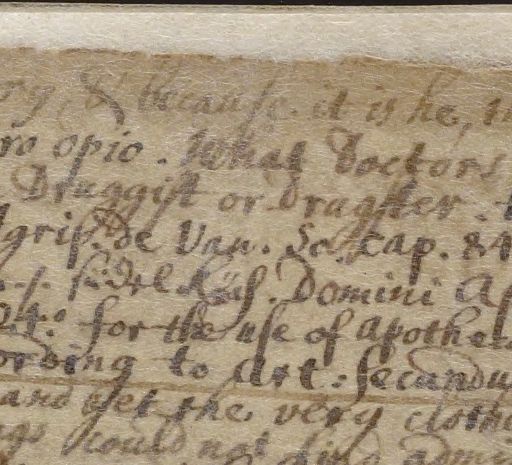 ory & because it is he,
ro opio. What Doctors
Druggist or Drugster.
Agrip. de Van. Sc. cap. 84
Domini
04. for the use of Apothec
ording to Art: Secundu
and yet the very cloth
ngs could not find admi